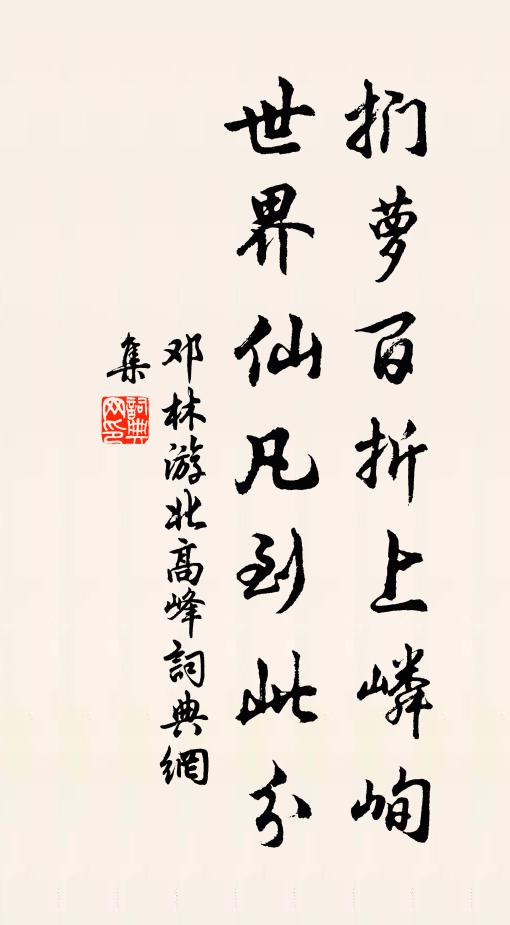 扪萝百折上嶙峋
世界仙凡到此分
邓林游北高峰詞典網
集
詞典网印